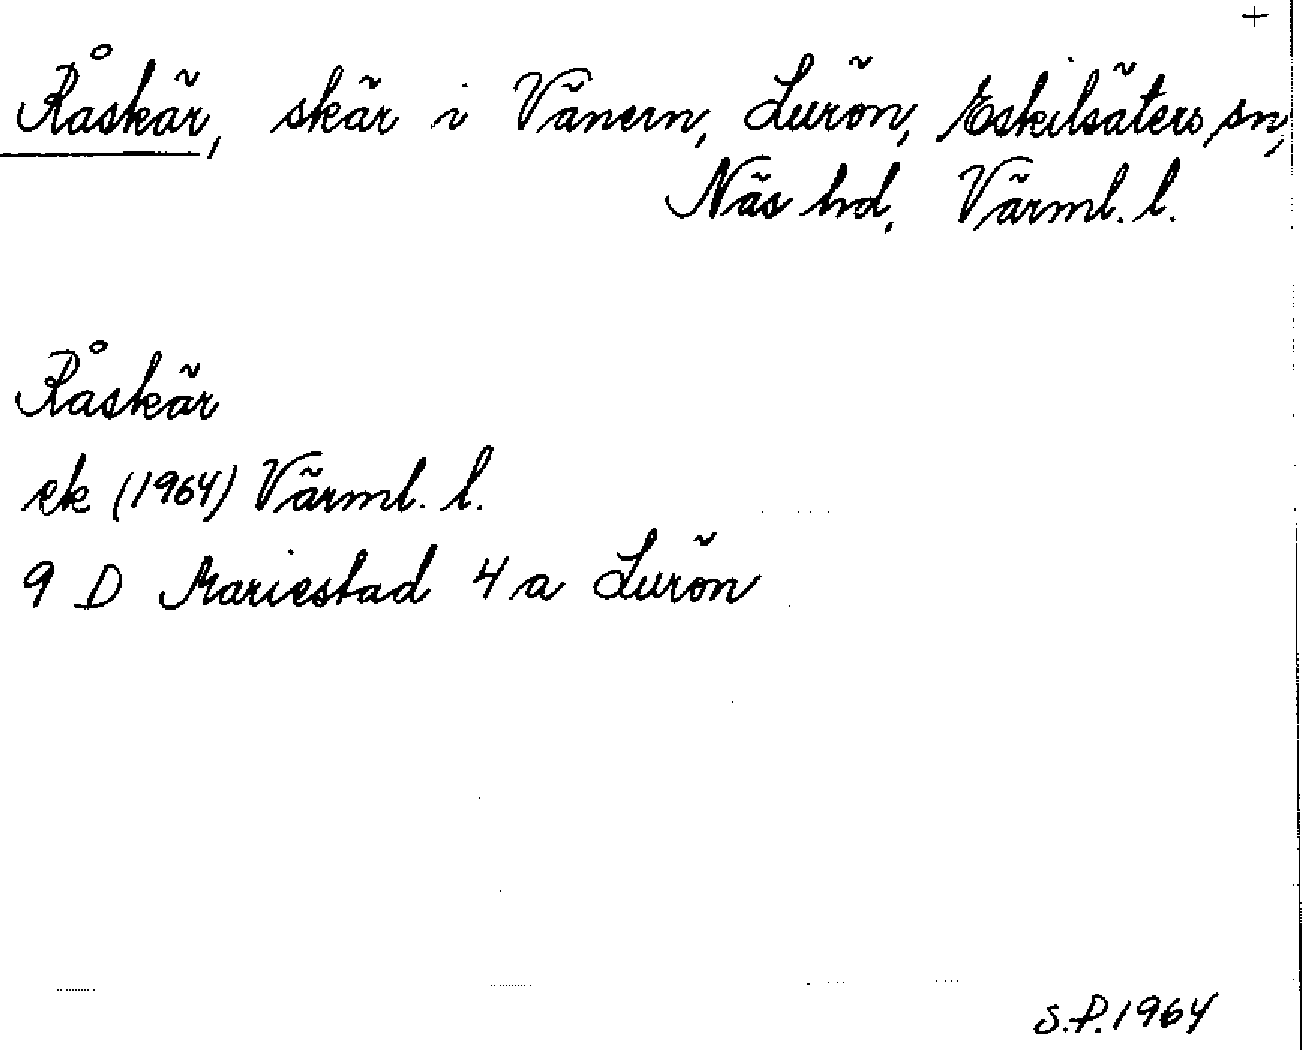 +
Råskär, skär i Vänern, Lurön, Eskilsäters sn,
Näs hd, Värml. l.
Råskär
ek (1964) Värml. l.
9 D Mariestad 4 a Lurön
S.P. 1964